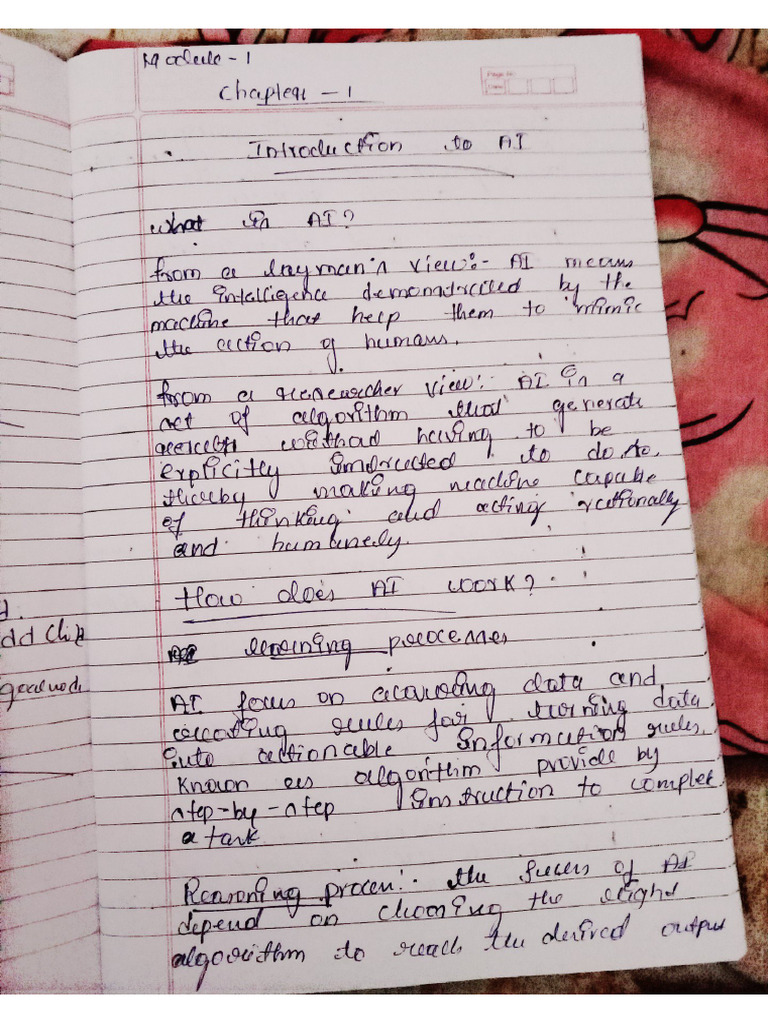 Module - 1
Chapter - 1
Introduction to AI
What is AI?
from a layman's view:- AI means
the intelligence demonstrated by the
machine that help them to mimic
the action of humans.
from a researcher view:- AI is a
set of algorithm that generate
without having to be
explicitly instructed to do so,
thereby making machine capable
of thinking and acting rationally
and humanely.
How does AI work?
learning processes
AI focus on acquiring data and
creating rules for turning data
into actionable information rules,
known as algorithm provide by
step-by-step instruction to complet
a task
Reasoning process:- the focus of AI
depend on choosing the right
algorithm to reach the desired output
dd
goal node